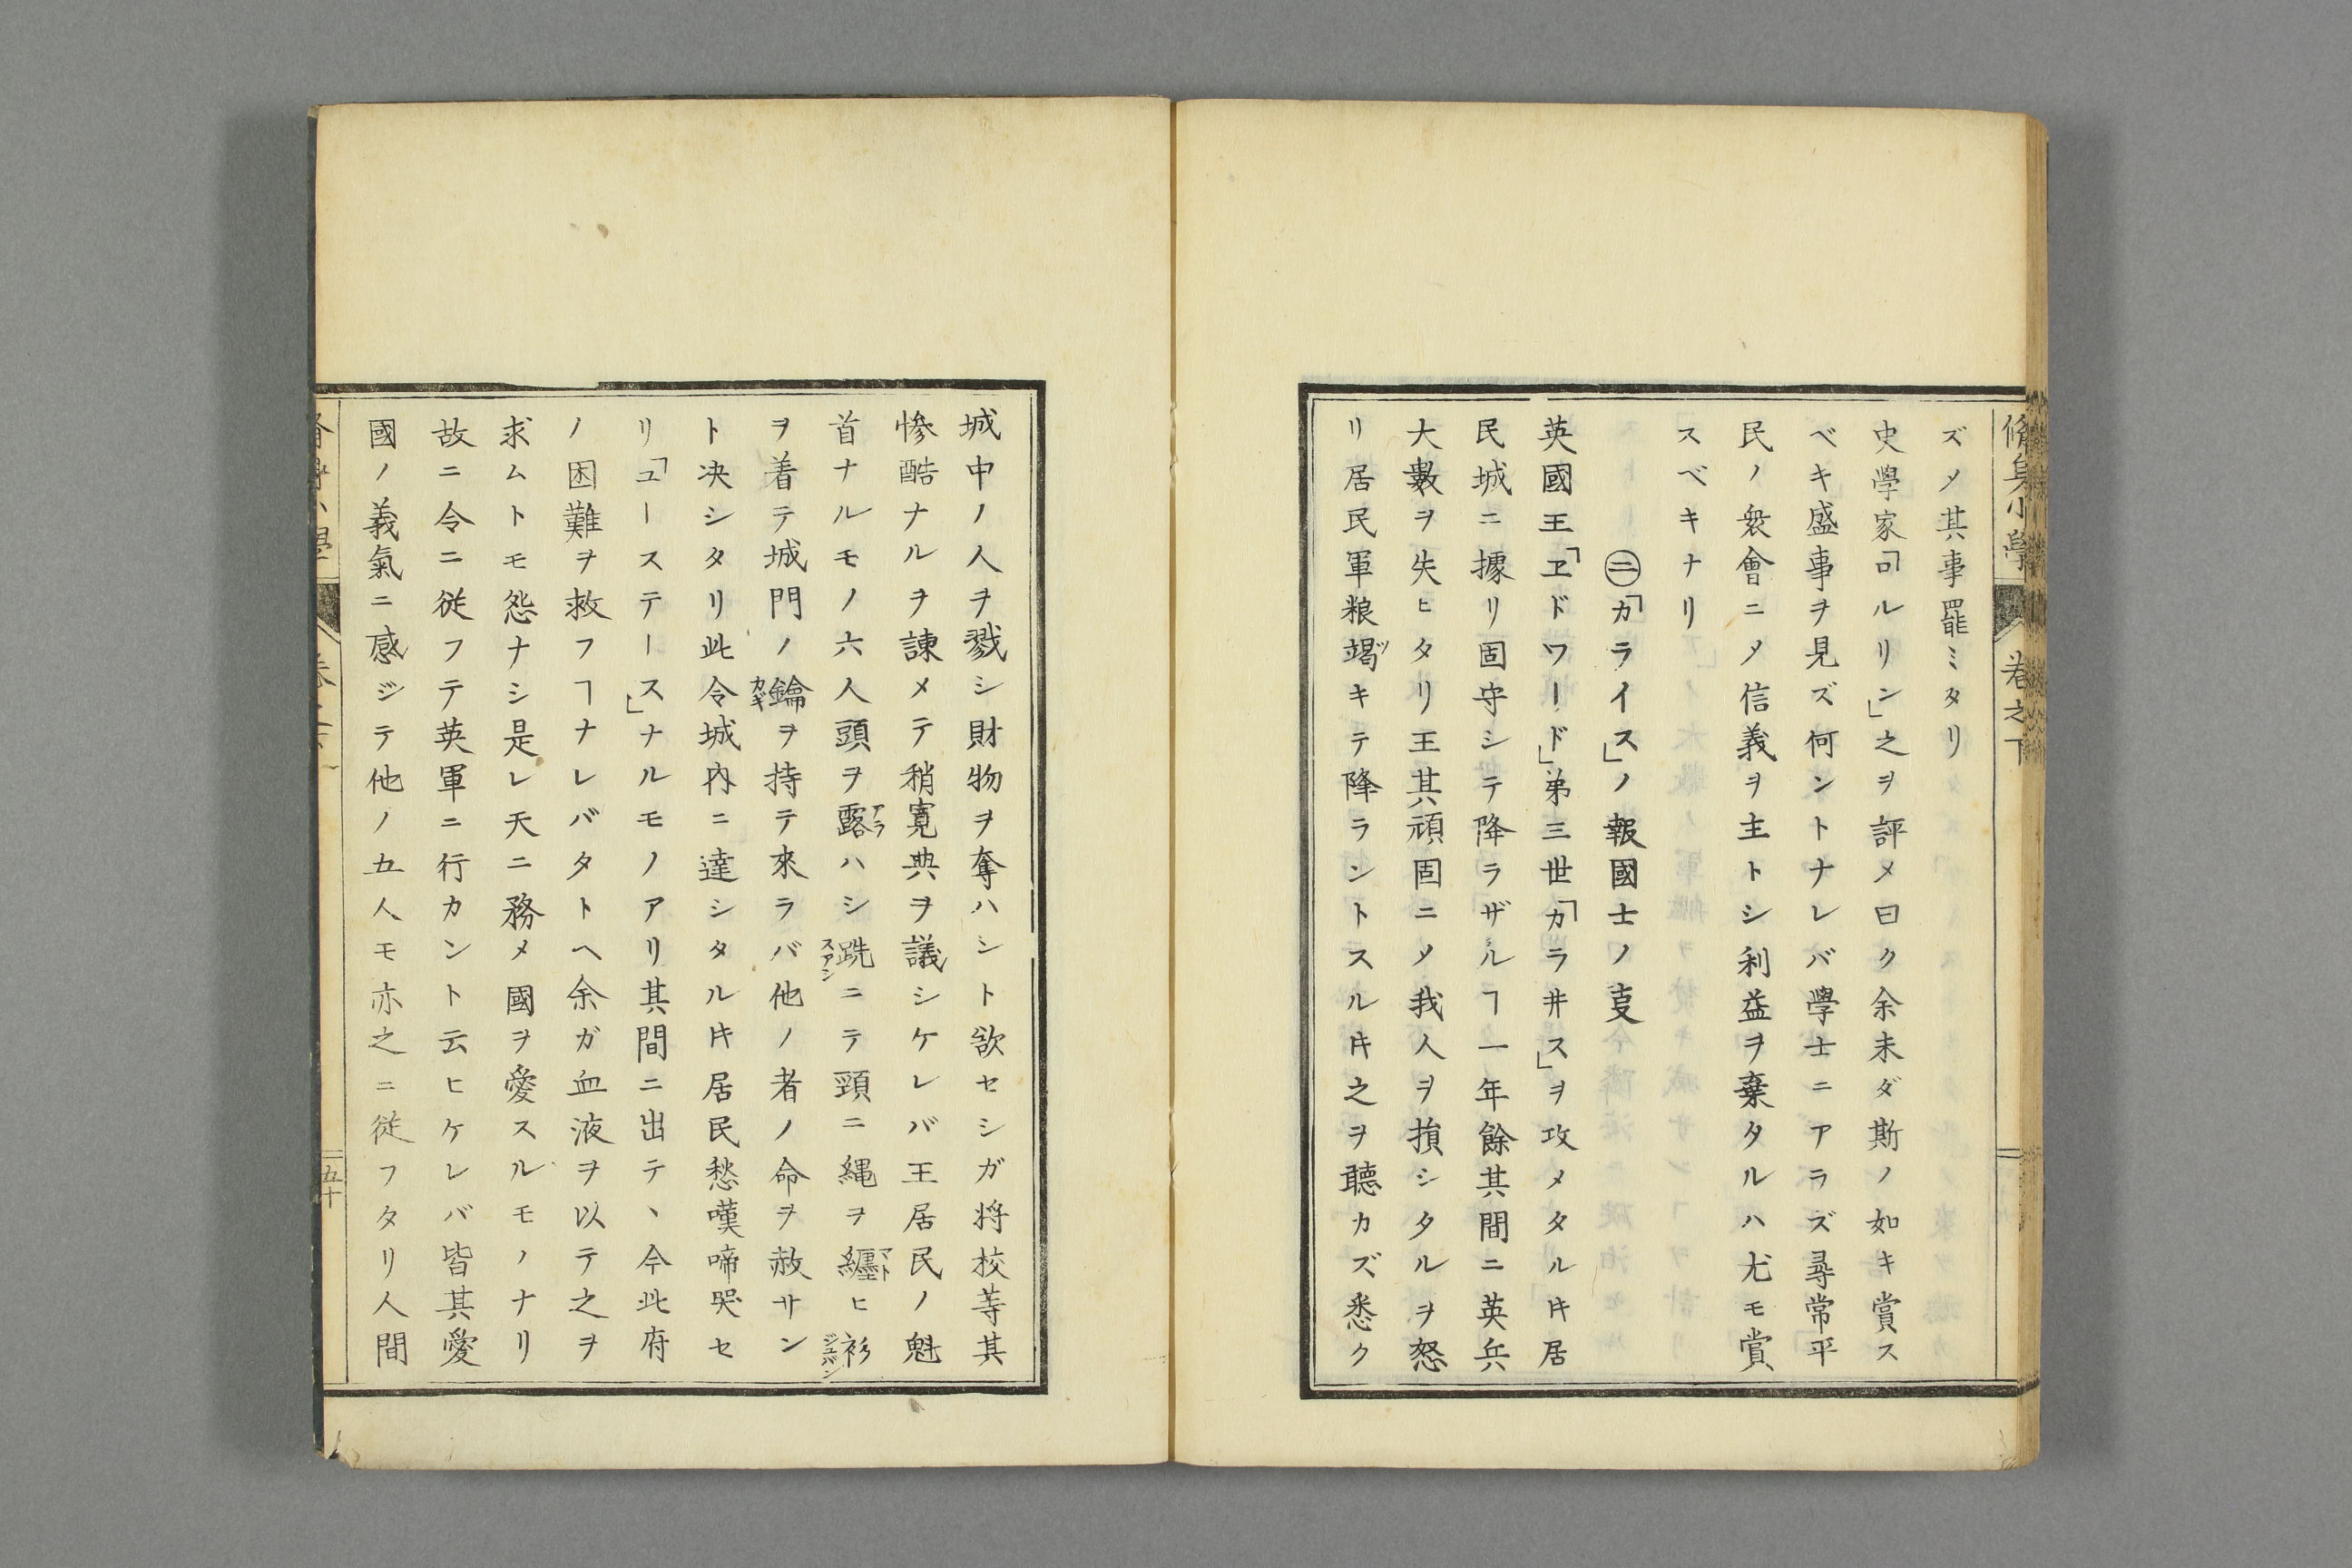 脩身小學 卷之下
ズメ其事罷ミタリ
史學家「ロルリン」之ヲ評メ曰ク余未ダ斯ノ如キ賞ス
ベキ盛事ヲ見ズ何ントナレバ學士ニアラズ尋常平
民ノ衆會ニメ信義ヲ主トシ利益ヲ棄タルハ尤モ賞
スベキナリ
㊁「カライス」ノ報國士ノ㕝
英國王「ヱドワード」第三世「カラ井ス」ヲ攻メタル𪜈居
民城ニ據リ固守シテ降ラザルヿ一年餘其間ニ英兵
大數ヲ失ヒタリ王其頑固ニメ我人ヲ損シタルヲ怒
リ居民軍粮竭ツキテ降ラントスル𪜈之ヲ聽カズ悉ク
城中ノ人ヲ戮シ財物ヲ奪ハシト欲セシガ将校等其
慘酷ナルヲ諌メテ稍寛典ヲ議シケレバ王居民ノ魁
首ナルモノ六人頭ヲ露アラハシ跣スアシニテ頸ニ縄ヲ纒マトヒ衫ジユバン
ヲ着テ城門ノ鑰カギヲ持テ來ラバ他ノ者ノ命ヲ赦サン
ト决シタリ此令城内ニ達シタル𪜈居民愁嘆啼哭セ
リ「ユーステース」ナルモノアリ其間ニ出テ、今此府
ノ困難ヲ救フヿナレバタトヘ余ガ血液ヲ以テ之ヲ
求ムトモ怨ナシ是レ天ニ務メ國ヲ愛スルモノナリ
故ニ令ニ従フテ英軍ニ行カント云ヒケレバ皆其愛
國ノ義氣ニ感ジテ他ノ五人モ亦之ニ従フタリ人間
五十